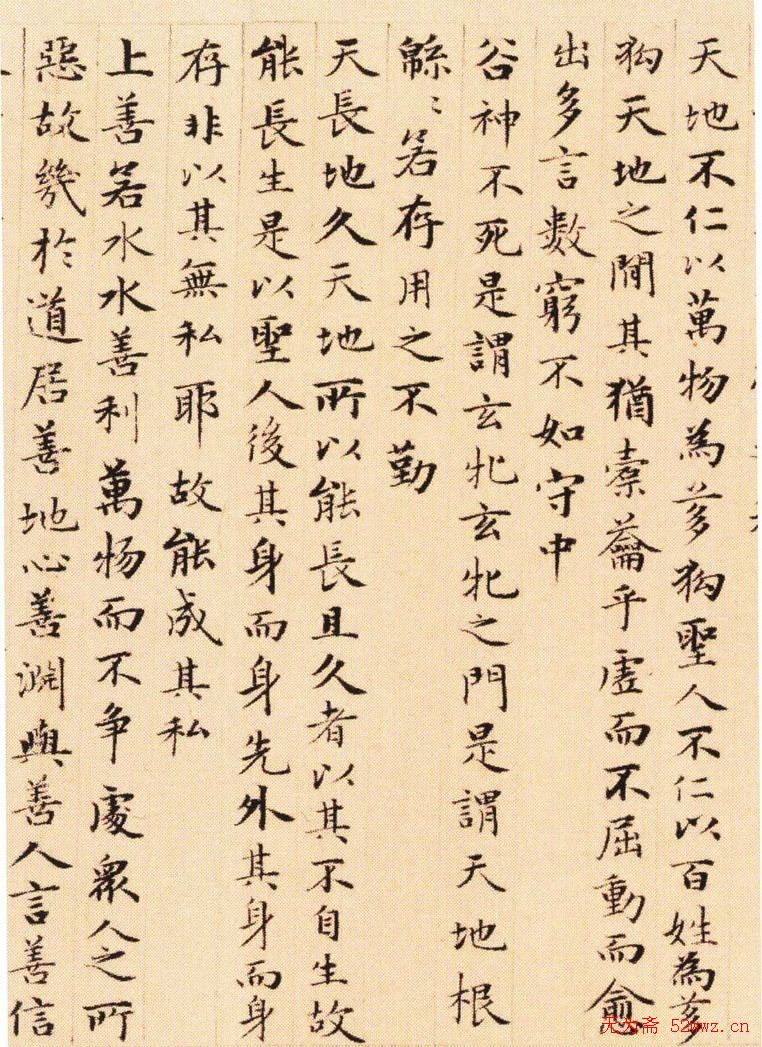 天地不仁以萬物為芻狗聖人不仁以百姓為芻
狗天地之間其猶橐蘥乎虛而不屈動而愈
出多言數窮不如守中
谷神不死是謂玄牝玄牝之門是謂天地根
緜〻若存用之不勤
天長地久天地所以能長且久者以其不自生故
能長生是以聖人後其身而身先外其身而身
存非以其無私耶故能成其私
上善若水水善利萬物而不争處衆人之所
惡故幾於道居善地心善淵與善人言善信
无为斋 52wwz.cn